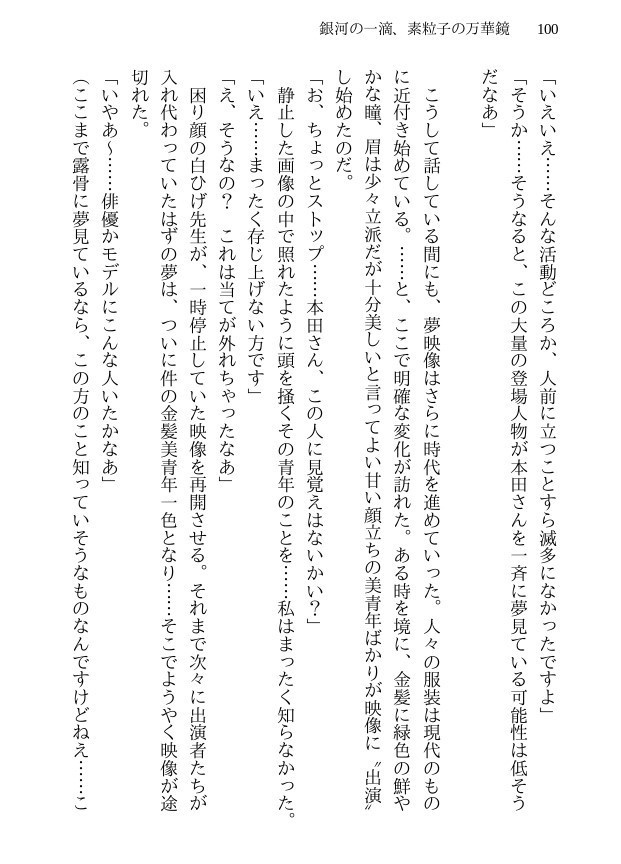 銀河の一滴、素粒子の万華鏡 100
「いえいえ……そんな活動どころか、人前に立つことすら滅多になかったですよ」
「そうか……そうなると、この大量の登場人物が本田さんを一斉に夢見ている可能性は低そう
だなあ」
こうして話している間にも、夢映像はさらに時代を進めていった。人々の服装は現代のもの
に近付き始めている。……と、ここで明確な変化が訪れた。ある時を境に、金髪に緑色の鮮や
かな瞳、眉は少々立派だが十分美しいと言ってよい甘い顔立ちの美青年ばかりが映像に〝出演〟
し始めたのだ。
「お、ちょっとストップ……本田さん、この人に見覚えはないかい？」
静止した画像の中で照れたように頭を掻くその青年のことを……私はまったく知らなかった。
「いえ……まったく存じ上げない方です」
「え、そうなの？　これは当てが外れちゃったなあ」
困り顔の白ひげ先生が、一時停止していた映像を再開させる。それまで次々に出演者たちが
入れ代わっていたはずの夢は、ついに件の金髪美青年一色となり……そこでようやく映像が途
切れた。
「いやあ～……俳優かモデルにこんな人いたかなあ」
（ここまで露骨に夢見ているなら、この方のこと知っていそうなものなんですけどねえ……こ